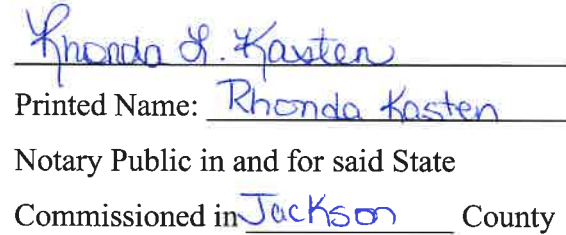 Rhonda L. Kasten
Printed Name: Rhonda Kasten
Notary Public in and for said State
Commissioned in Jackson County